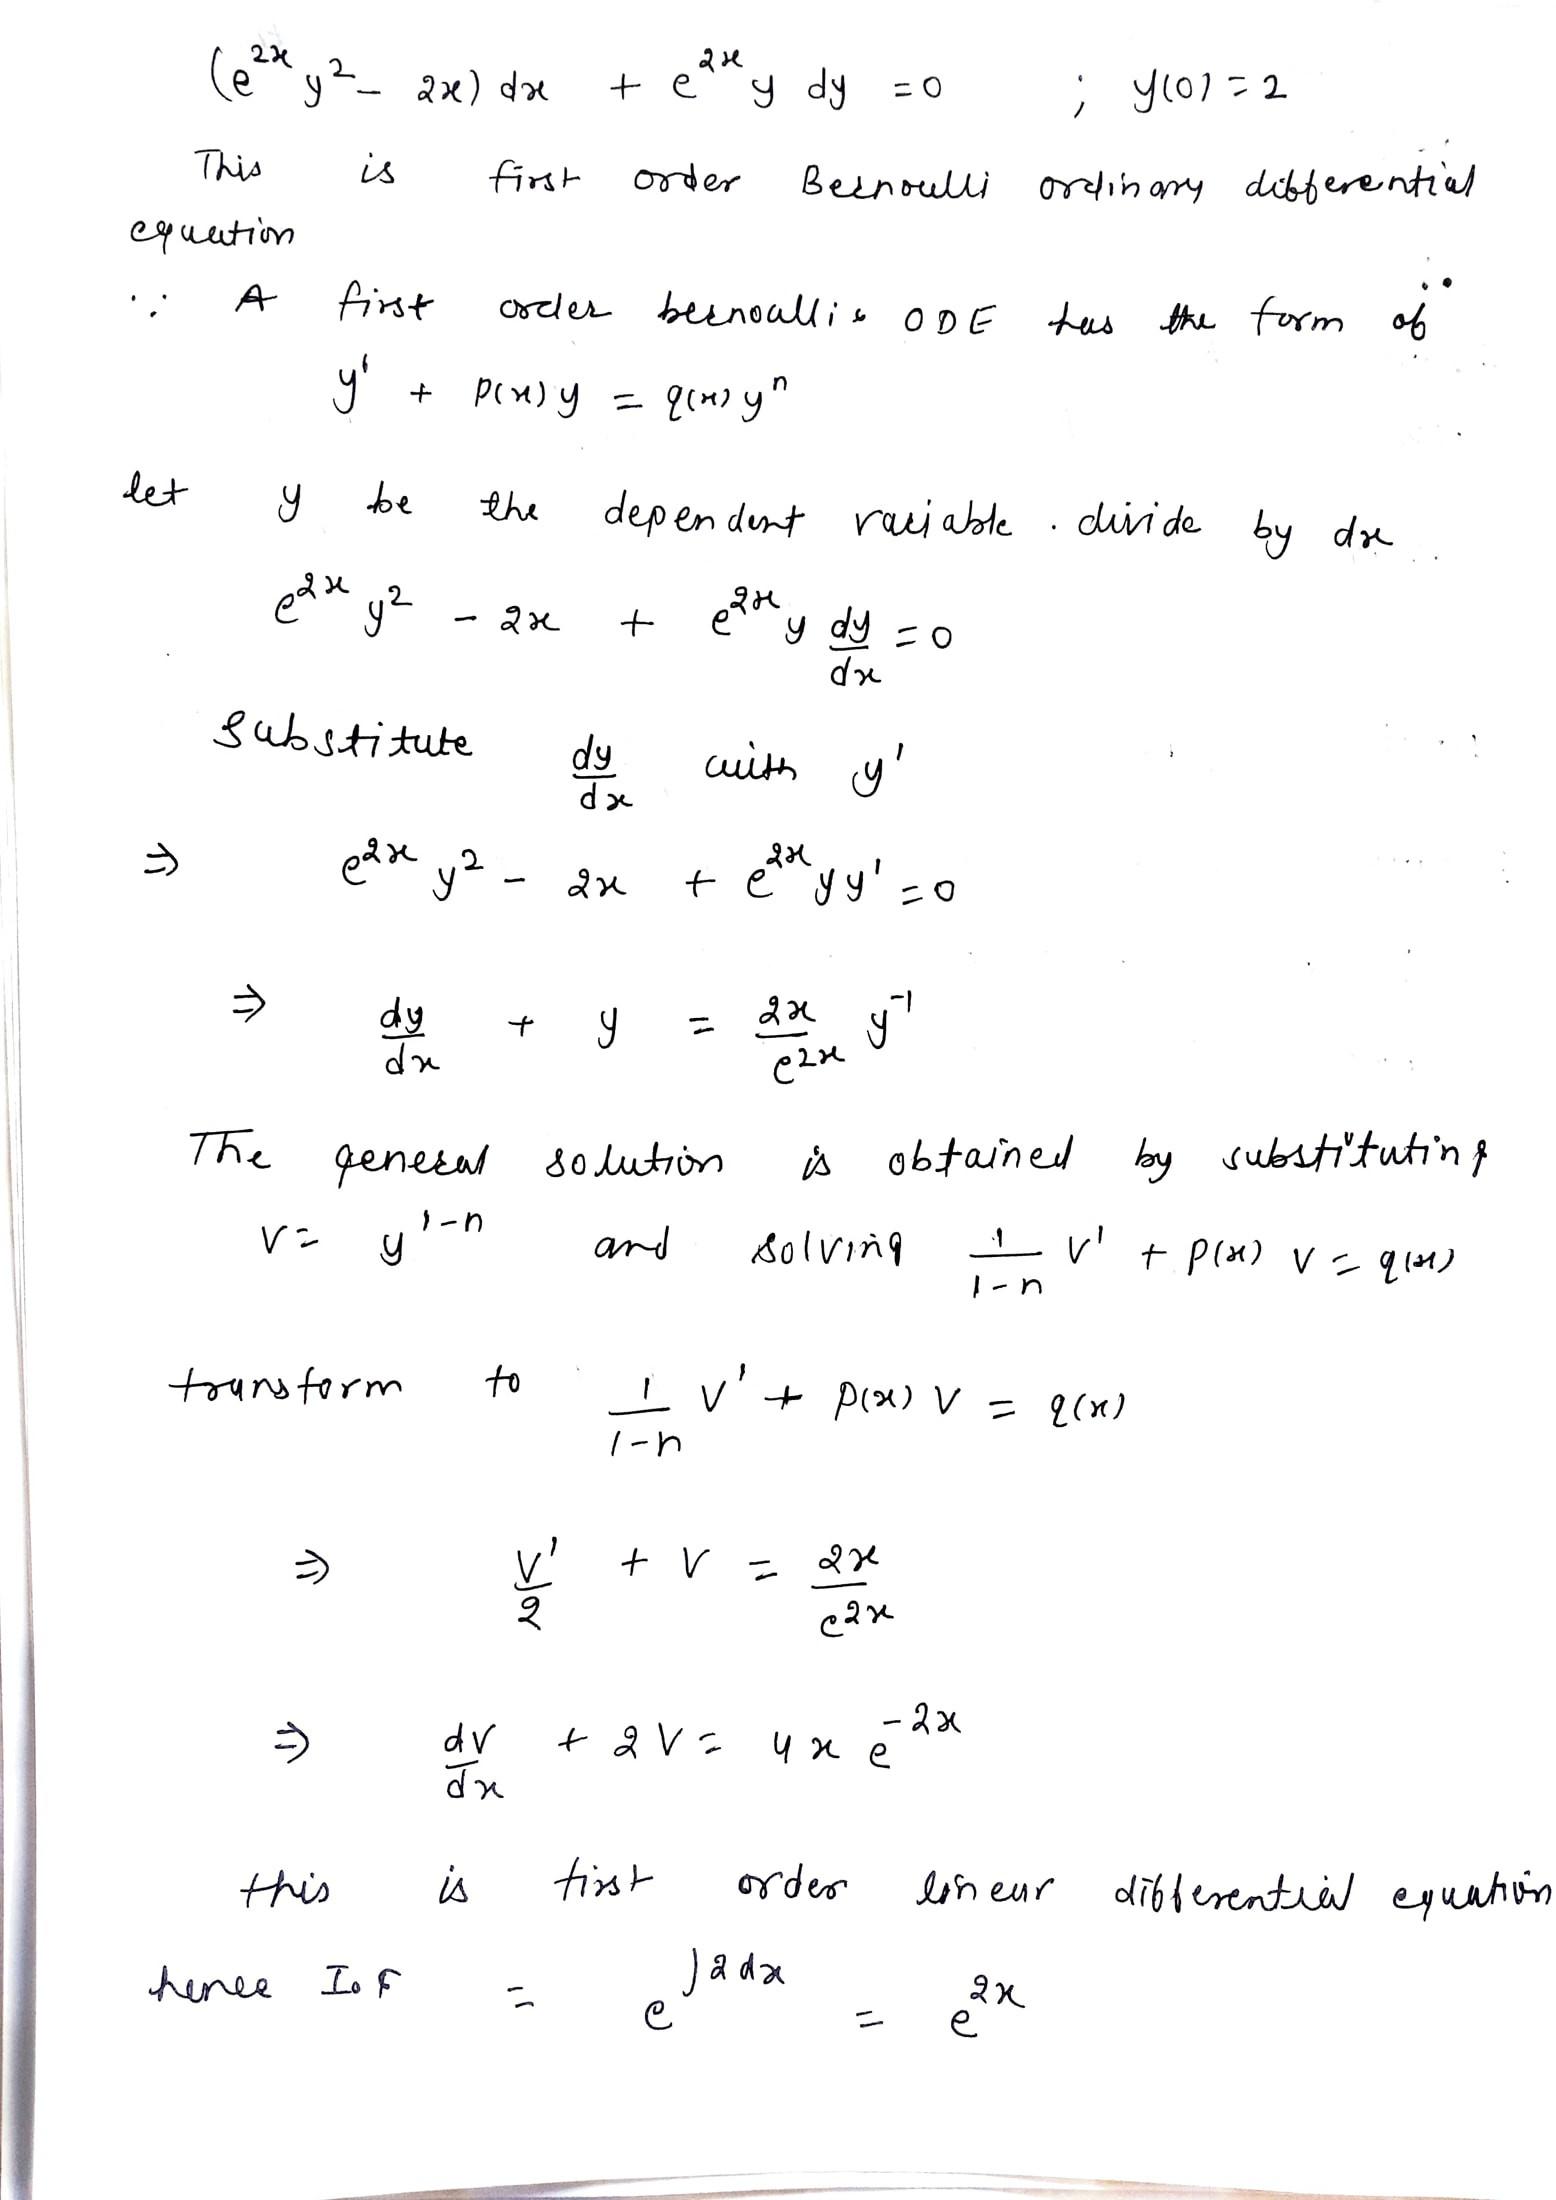 (e^{2x} y^2 - 2x) dx + e^{2x} y dy = 0 ; y(0) = 2
This is first order Bernoulli ordinary differential
equation
∵ A first order bernoallis ODE has the form of
y' + P(x) y = q(x) y^n
let y be the dependent variable . divide by dx
e^{2x} y^2 - 2x + e^{2x} y dy/dx = 0
Substitute dy/dx with y'
⇒ e^{2x} y^2 - 2x + e^{2x} y y' = 0
⇒ dy/dx + y = 2x/e^{2x} y^{-1}
The general solution is obtained by substituting
v = y^{1-n} and solving 1/(1-n) v' + P(x) v = q(x)
transform to 1/(1-n) v' + P(x) v = q(x)
⇒ v'/2 + v = 2x/e^{2x}
⇒ dv/dx + 2v = 4x e^{-2x}
this is first order linear differential equation
hence I.F = e^{∫2dx} = e^{2x}